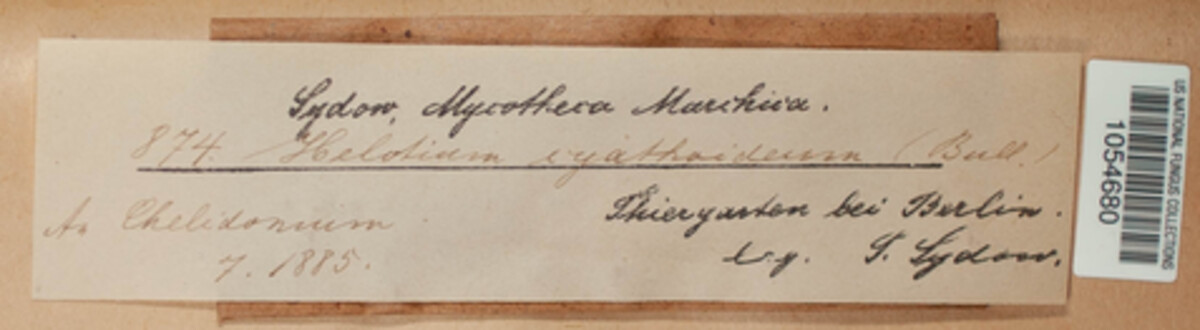 Sydow, Mycotheca Marchica.
874. Helotium cyathoideum (Bull.)
An Chelidonium
7. 1885.
Thiergarten bei Berlin.
Leg. P. Sydow.
US NATIONAL FUNGUS COLLECTIONS
1054680